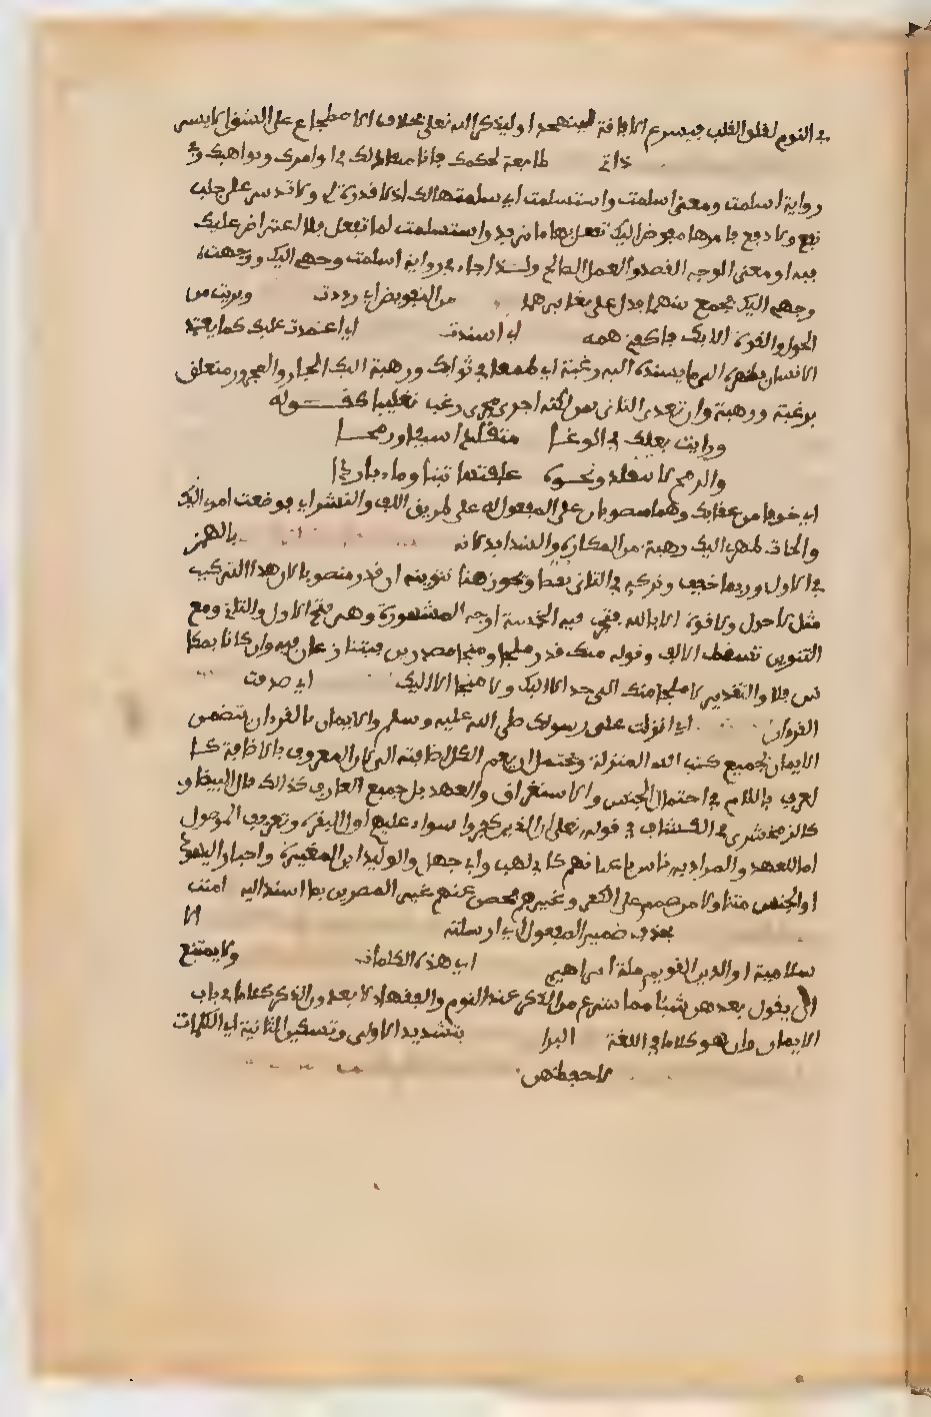 في النوم لقلق القلب فيسرع الافاقة ليتهجد او ليذكر الله تعلى بخلاف الاضطجاع على الشق الايسر
ذاتي طايعة لحكمك فانا منقاد لك في اوامرك ونواهيك وفي
رواية اسلمت ومعنى اسلمت واستسلمت اي سلمتها لك اذ لا قدرة لي ولا تدبير على جلب
نفع ولا دفع فامرها مفوض اليك تفعل بها ما تريد واستسلمت لما تفعل فلا اعتراض عليك
فيه او معنى الوجه القصد والعمل الصالح ولذا جاء في رواية اسلمت وجهي اليك ووجهت
وجهي اليك فجمع بينهما فدل على تغايرهما من التفويض اي رددت وبرئت من
الحول والقوة الا بك فاكفني همه اي اسندت اي اعتمدت عليك كما يعتمد
الانسان بظهره الى ما يسنده اليه رغبة اي طمعا في ثوابك ورهبة اليك الجار والمجرور متعلق
برغبة ورهبة وان تعدى الثاني بمن لكنه اجري مجرى رغب تغليبا كقوله
ورايت بعلك في الوغا متقلدا سيفا ورمحا
والرمح لا يتقلد ونحوه علفتها تبنا وماء باردا
اي خوفا من عقابك وهما منصوبان على المفعول له على طريق اللف والنشر اي فوضت امري اليك
والجات ظهري اليك رهبة من المكاره والشدايد لانه بالهمز
في الاول وربما خفف وتركه في الثاني كعصا ويجوز هنا تنوينه ان قدر منصوبا لان هذا التركيب
مثل لا حول ولا قوة الا بالله فتجري فيه الخمسة اوجه المشهورة وهي فتح الاول والثاني ومع
التنوين تسقط الالف وقوله منك قدر ملجا ومنجا مصدرين فيتنازعان فيه وان كانا مكا
نين فلا والتقدير لا ملجا منك الى احد الا اليك ولا منجا الا اليك اي صدقت
القرءان اي انزلت على رسولك صلى الله عليه وسلم والايمان بالقرءان يتضمن
الايمان بجميع كتب الله المنزلة ويحتمل ان يعم الكل لاضافته الى الضمير لان المعروف بالاضافة كا
لمعرف باللام في احتمال الجنس والاستغراق والعهد بل جميع المعارف كذلك قال البيضاو
كالزمخشري في الكشاف في قوله تعلى ان الذين كفروا سواء عليهم اول البقرة وتعريف الموصول
اما للعهد والمراد به ناس باعيانهم كابي لهب وابي جهل والوليد ابن المغيرة واحبار اليهود
او الجنس متناولا من صمم على الكفر وغيرهم فخص عنهم غير المصرين بما اسند اليه امنت
بحذف ضمير المفعول اي ارسلته الا
سلامية او الدين القويم ملة ابراهيم اي هذه الكلمات ولا يمتنع
ان يقول بعدهن شيئا مما شرع من الذكر عند النوم والفقهاء لا يعدون الذكر كلاما في باب
الايمان وان هو كلاما في اللغة البرا بتشديد الاولى وتسكين الثانية اي الكلمات
لاحفظهن